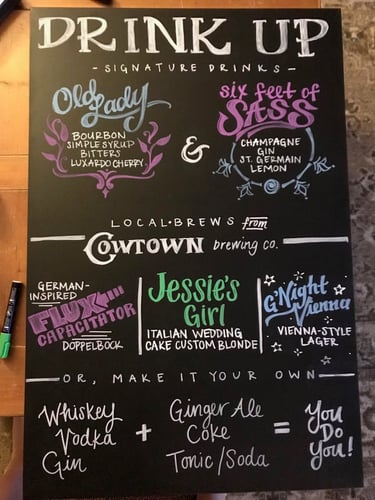 DRINK UP
- SIGNATURE DRINKS -
Old Lady
BOURBON
SIMPLE SYRUP
BITTERS
LUXARDO CHERRY
&
six feet of
SASS
CHAMPAGNE
GIN
ST. GERMAIN
LEMON
LOCAL • BREWS from
COWTOWN brewing co.
GERMAN-
INSPIRED
FLUX
CAPACITATOR
DOPPELBOCK
Jessie's
Girl
ITALIAN WEDDING
CAKE CUSTOM BLONDE
G'Night
Vienna
VIENNA-STYLE
LAGER
OR, MAKE IT YOUR OWN
Whiskey
Vodka
Gin
+
Ginger Ale
Coke
Tonic/Soda
=
You
Do
You!